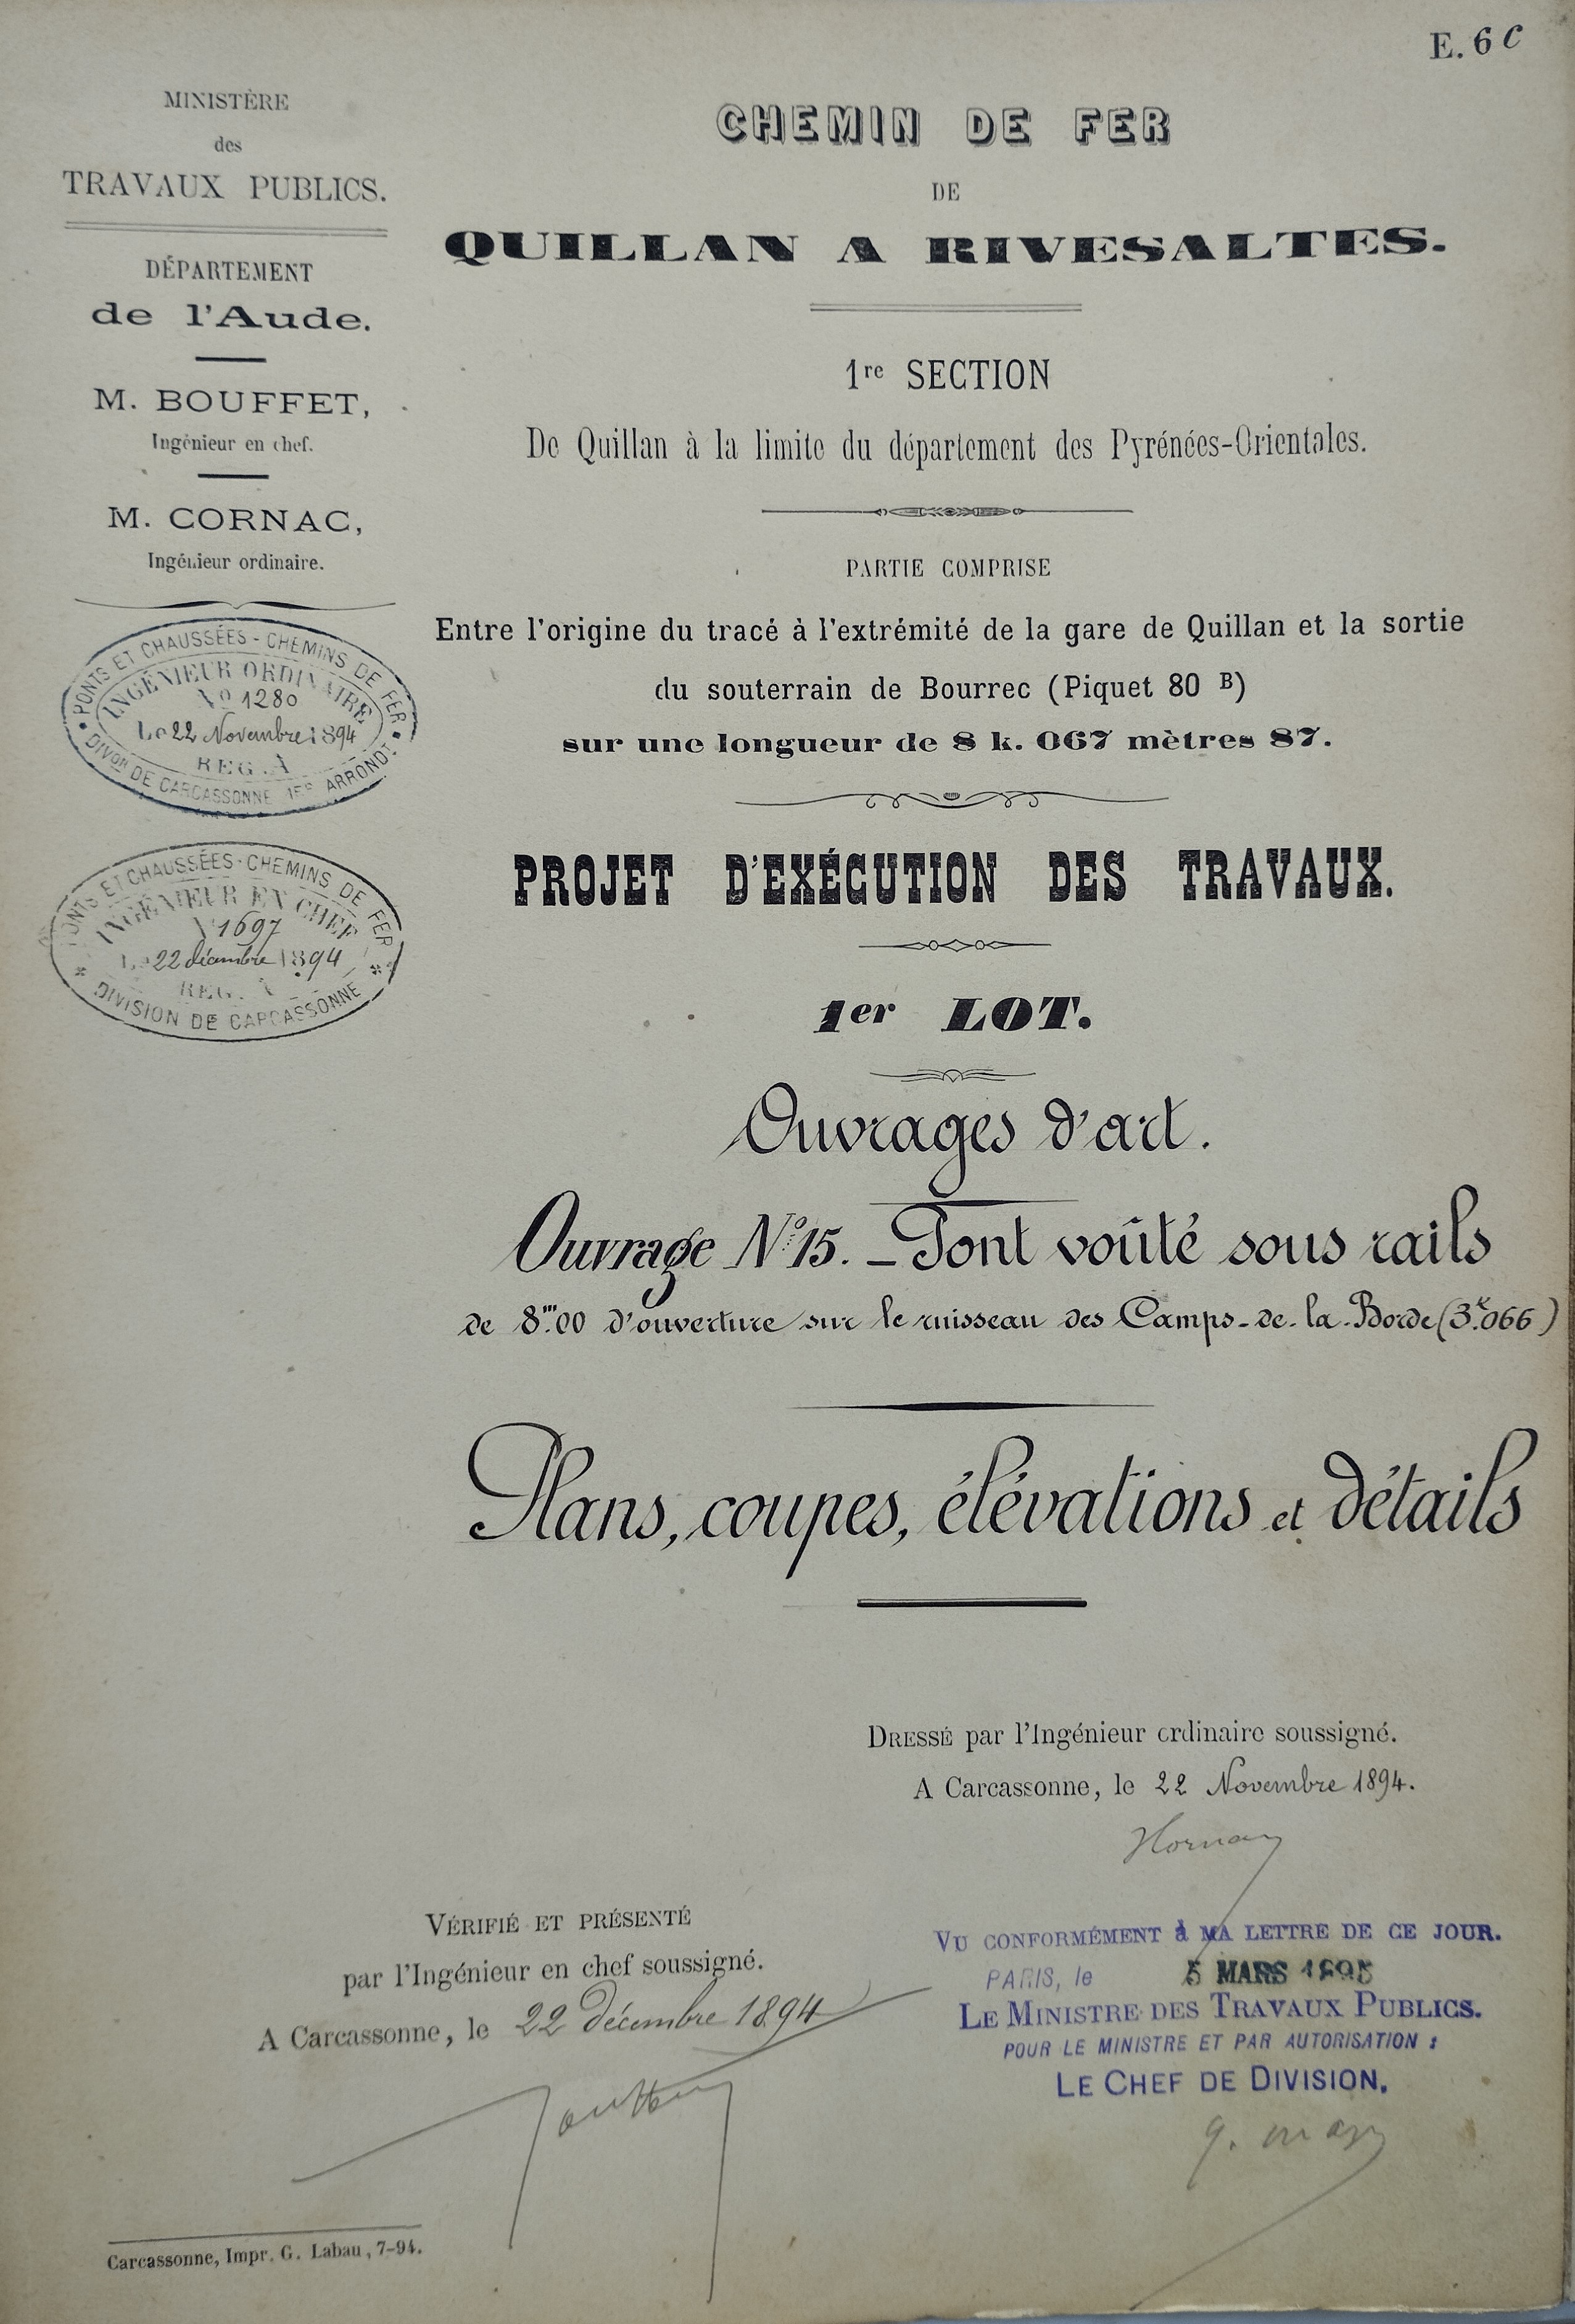 E. 6 C
MINISTÈRE
des
TRAVAUX PUBLICS.
DÉPARTEMENT
de l'Aude.
M. BOUFFET,
Ingénieur en chef.
M. CORNAC,
Ingénieur ordinaire.
PONTS ET CHAUSSÉES - CHEMINS DE FER
INGÉNIEUR ORDINAIRE
No 1280
Le 22 Novembre 1894
REG. A
DIVon DE CARCASSONNE 1ER ARRONDT
PONTS ET CHAUSSÉES - CHEMINS DE FER
INGÉNIEUR EN CHEF
N 1697
Le 22 décembre 1894
REG. A
DIVISION DE CARCASSONNE
CHEMIN DE FER
DE
QUILLAN A RIVESALTES.
1re SECTION
De Quillan à la limite du département des Pyrénées-Orientales.
PARTIE COMPRISE
Entre l'origine du tracé à l'extrémité de la gare de Quillan et la sortie
du souterrain de Bourrec (Piquet 80 B)
sur une longueur de 8 k. 067 mètres 87.
PROJET D'EXÉCUTION DES TRAVAUX.
1er LOT.
Ouvrages d'art.
Ouvrage N° 15. _ Pont voûté sous rails
de 8m.00 d'ouverture sur le ruisseau des Camps-de-la-Borde (3k.066)
Plans, coupes, élévations et détails
DRESSÉ par l'Ingénieur ordinaire soussigné.
A Carcassonne, le 22 Novembre 1894.
VÉRIFIÉ ET PRÉSENTÉ
par l'Ingénieur en chef soussigné.
A Carcassonne, le 22 décembre 1894
VU CONFORMÉMENT à MA LETTRE DE CE JOUR.
PARIS, le 5 MARS 1895
LE MINISTRE DES TRAVAUX PUBLICS.
POUR LE MINISTRE ET PAR AUTORISATION :
LE CHEF DE DIVISION,
Carcassonne, Impr. G. Labau, 7-94.